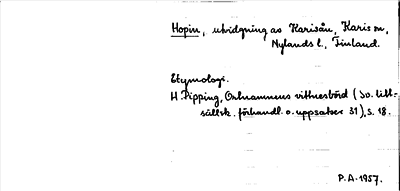 Hopin, utvidgning av Karisån, Karis sn,
Nylands l., Finland.
Etymologi.
H. Pipping, Ortnamnens vittnesbörd (Sv. litt=
sällsk. förhandl. o. uppsatser 31), s. 18.
P.A. 1957.